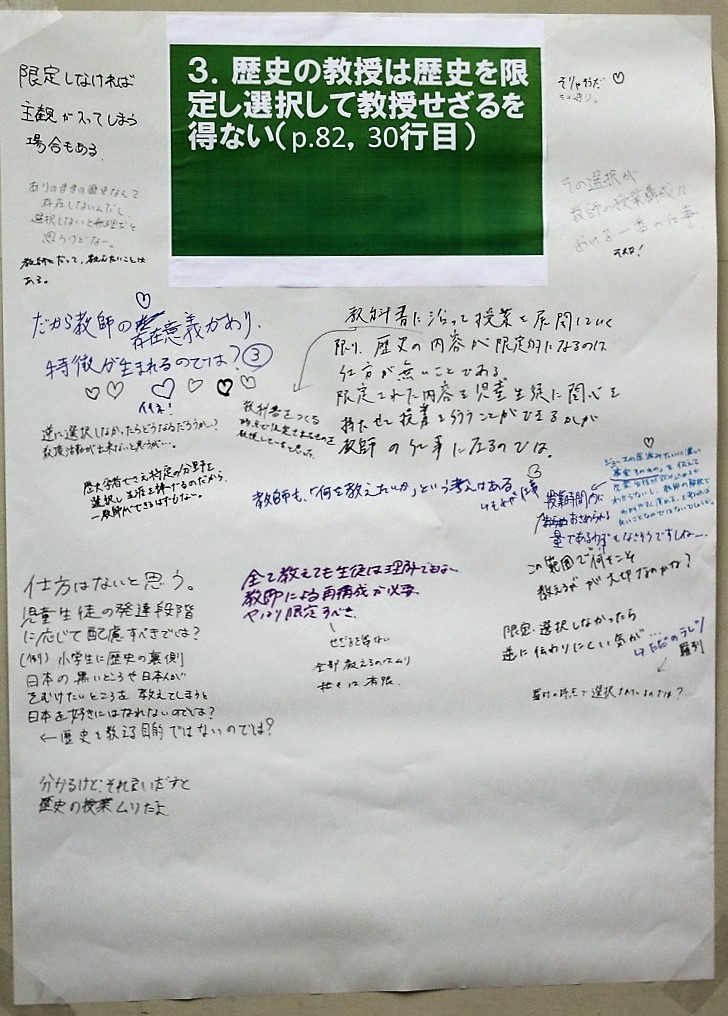 3. 歴史の教授は歴史を限
定し選択して教授せざるを
得ない(p.82, 30行目)
限定しなければ
主観が入ってしまう
場合もある
ありのままの歴史なんて
存在しないんだし、
選択しないと無理だと
思うけどなー。
教師だって、教えたいことは
ある。
そりゃそうだ
その選択が
教師の授業構成に
おける一番の仕事
それな!
だから教師の存在意義があり、
特徴が生まれるのでは? ③
いいね!
逆に選択しなかったらどうなるだろうか?
教科書に沿って授業を展開していく
限り、歴史の内容が限定的になるのは
仕方が無いことである。
限定された内容を児童生徒に関心を
持たせて授業を行うことができるかが
教師の仕事になるのでは。
教科書をつくる
歴史学者でさえ特定の分野を
選択し生涯を捧げるのだから、
一教師ができるはずもない。
教師も、「何を教えたいか」という考えはある
授業時間内に
おさめられる
量であるわけもなさそうですしねー。
この範囲で何をこそ
教えるかが大切なのかな?
仕方はないと思う。
児童生徒の発達段階
に応じて配慮すべきでは?
(例) 小学生に歴史の裏側
日本の黒いところや日本人が
目をそむけたいところを教えてしまうと
日本を好きにはなれないのでは?
←歴史を教える目的ではないのでは?
全て教えても生徒は理解できない
教師による再構成が必要
やはり限定すべき
せざるを得ない
全部教えるのはムリ
限定・選択しなかったら
逆に伝わりにくい気が…
↳ただのラレツ
羅列
分かるけど、それ言いだすと
歴史の授業ムリだよ